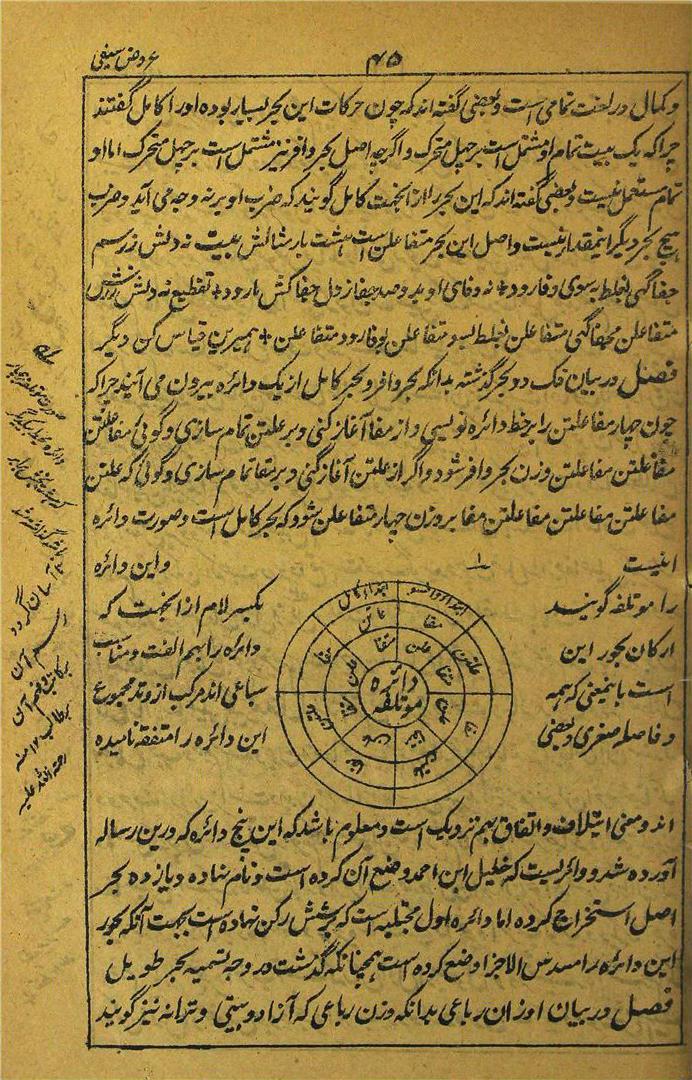 عروض سیفی
۴۵
و کمال در لغت تمامی است و بعضی گفته اند که چون حرکات این بحر بسیار بوده او را کامل گفتند
چرا که یک بیت تمام او مشتمل است بر چهل متحرک و اگرچه اصل بحر وافر نیز مشتمل است بر چهل متحرک اما او
تمام مستعمل نیست و بعضی گفته اند که این بحر را از انجهت کامل گویند که ضرب او بر نه وجه می آید و ضرب
هیچ بحر دیگر اینمقدار نیست و اصل این بحر متفاعلن است هشت بار مثالش بیت نه دلش ز رسم
جفا گهی بغلط بسوی وفا رود + نه وفای او بدو صد جفا ز دل جفا کش ما رود + تقطیع نه دلش ز رس
متفاعلن م جفا گهی متفاعلن بغلط بسو متفاعلن ی وفا رود متفاعلن + همبرین قیاس کن دیگر
فصل در بیان فک دو بحر گذشته بدانکه بحر وافر و بحر کامل از یک دائره بیرون می آیند چرا که
چون چهار مفاعلتن را بر خط دائره نویسی و از مفا آغاز کنی و بر علتن تمام سازی و گوئی مفاعلتن
مفاعلتن مفاعلتن مفاعلتن وزن بحر وافر شود و اگر از علتن آغاز کنی و بر مفا تمام سازی و گوئی که علتن
مفا علتن مفا علتن مفا علتن مفا بر وزن چهار متفاعلن شود که بحر کامل است و صورت دائره
اینست و این دائره
را موتلفه گویند بکسر لام از انجهت که
ارکان بحور این دائره را بهم الفت و مناسبت
است باینمعنی که همه سباعی اند مرکب از وتد مجموع
و فاصله صغری و بعضی این دائره را متفقه نامیده
دائره
موتلفه
اند و معنی ائتلاف و اتفاق بهم نزدیک است و معلوم باشد که این پنج دائره که درین رساله
آورده شد دوائریست که خلیل ابن احمد وضع آن کرده است و نام نهاده و پانزده بحر
اصل استخراج کرده اما دائره اول مختلفه است که بر شش رکن نهاده است بجهت آنکه بحور
این دائره را مسدس الاجزا وضع کرده است همچنانکه گذشت در وجه تسمیه بحر طویل
فصل در بیان اوزان رباعی بدانکه وزن رباعی که آنرا دو بیتی و ترانه نیز گویند
آسان گردد
رسم آن
بر طالب ۱۲ منه
رحمة الله علیه